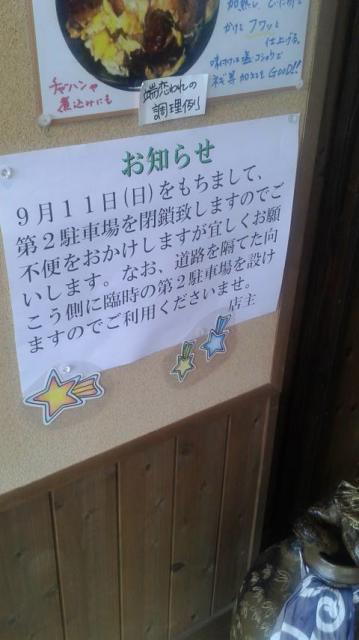 加熱し
かけと フワッと
仕上げる。
味付けは塩、コショウで
GOOD!!
チャーハンや
煮込みにも
端恋われの
調理例
お知らせ
9月11日(日)をもちまして、
第2駐車場を閉鎖致しますのでご
不便をおかけしますが宜しくお願
いします。なお、道路を隔てた向
こう側に臨時の第2駐車場を設け
ますのでご利用くださいませ。
店主